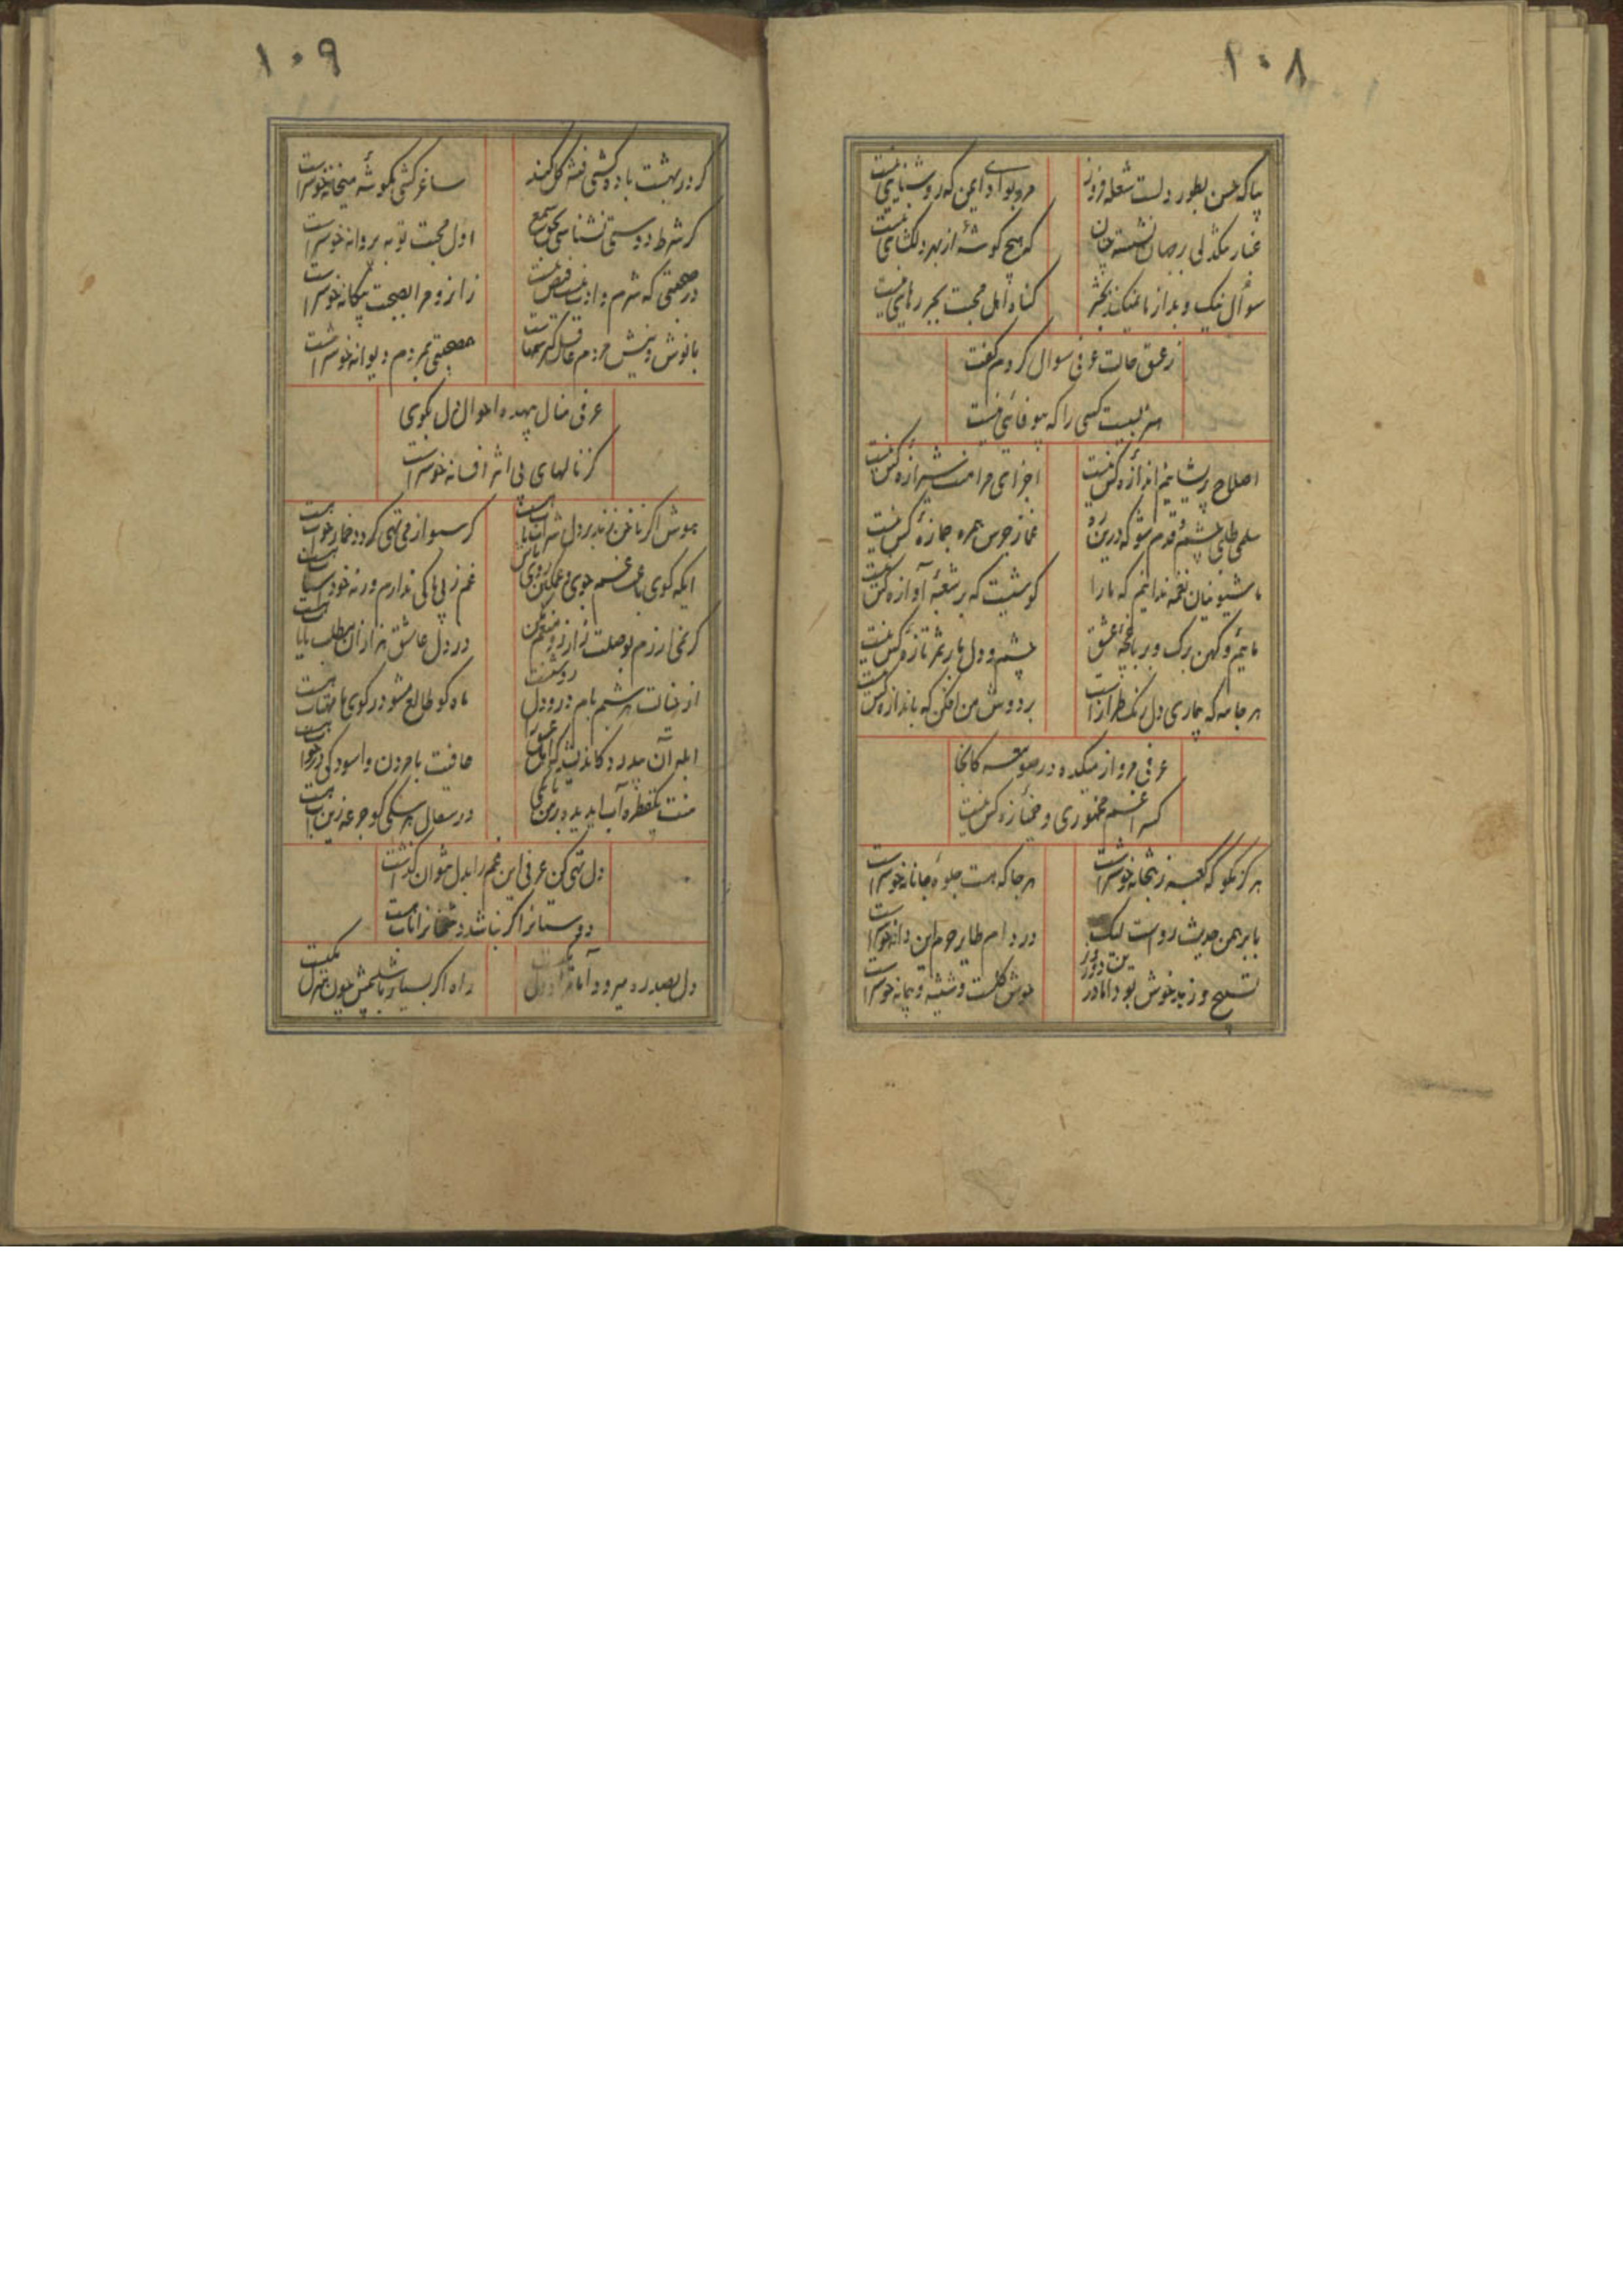 ۱۰۸
بیا که حسن بطور دلت شعله فروز
مرو بوادی ایمن که روشنایی نیست
غبار تنگدلی بر جهان نشسته چنان
که هیچ گوشهٔ از بهر دلگشایی نیست
سوال نیک و بد از ما نمیکنند بحشر
گناه اهل محبت بجز رهایی نیست
ز عشق حالت عرفی سوال کردم گفت
کسی را که بیوفائی نیست
اصلاح پریشانیم اندازهٔ کس نیست
اجزای مرا منت شیرازهٔ کس نیست
سلمی طلبی چشم قدم شو که درین ره
غماز جرس همره جمازهٔ کس نیست
ما شیونیان نغمه ندانیم که ما را
گوشیست که بر شعبهٔ آوازهٔ کس نیست
مائیم و کهن برگ و بر باغچهٔ عشق
چشم و دل ما بر ثمر تازهٔ کس نیست
هر جامه که بیماری دل رنگ طرازست
بر دوش من افکن که باندازهٔ کس نیست
عرفی مرو از میکده در صومعه کانجا
کس را غم مخموری و خمیازهٔ کس نیست
هرگز مگو که کعبه ز بتخانه خوشترست
هر جا که هست جلوهٔ جانانه خوشترست
با برهمن حدیث رواست لیک
در دام طایر حرم این دانه خوشترست
تسبیح و زهد خوش بود اما درین دو روز
جوش گلست و شیشه و پیمانه خوشترست
۱۰۹
گر در بهشت باده کشی نشه گل کند
ساغر کشی بگوشهٔ میخانه خوشترست
گر شرط دوستی نشناسی بسوی شمع
اول محبت تو به پروانه خوشترست
در صحبتی که شرم و ادب نیست فیض نیست
زانرو مرا بصحبت بیگانه خوشترست
با نوش و نیش مردم عاقل
صحبتی مردم دیوانه خوشترست
عرفی منال بیهده احوال دل بگوی
کز نالهای بی اثر افسانه خوشترست
هوش اگر ناخن زند بر دل شراب ناب هست
گر سبو از می تهی گردد خمار خواب هست
ایکه گوی باب غم جوی و غمگین روی باش
غم ز بی باکی ندارم ورنه خود اسباب هست
گر نمی ارزم بوصلت ز آرزو منعم مکن
در دل عاشق هزاران مطلب نایاب هست
از خیالت هر شبم بام و در دل روشنست
ماه گو طالع مشو در کوی ما مهتاب هست
عافیت با مردن و آسودگی در خواب هست
منت یکقطره آب
در سفال هر سگی گو جرعه زین آب هست
دل تهی کن عرفی این غم را بدل نتوان گذاشت
دوستانرا گر نباشد دشمنانرا تاب هست
دل بصد ره میرود اما مراد دل یکیست
راه اگر بسیار باشد چون منزل یکیست